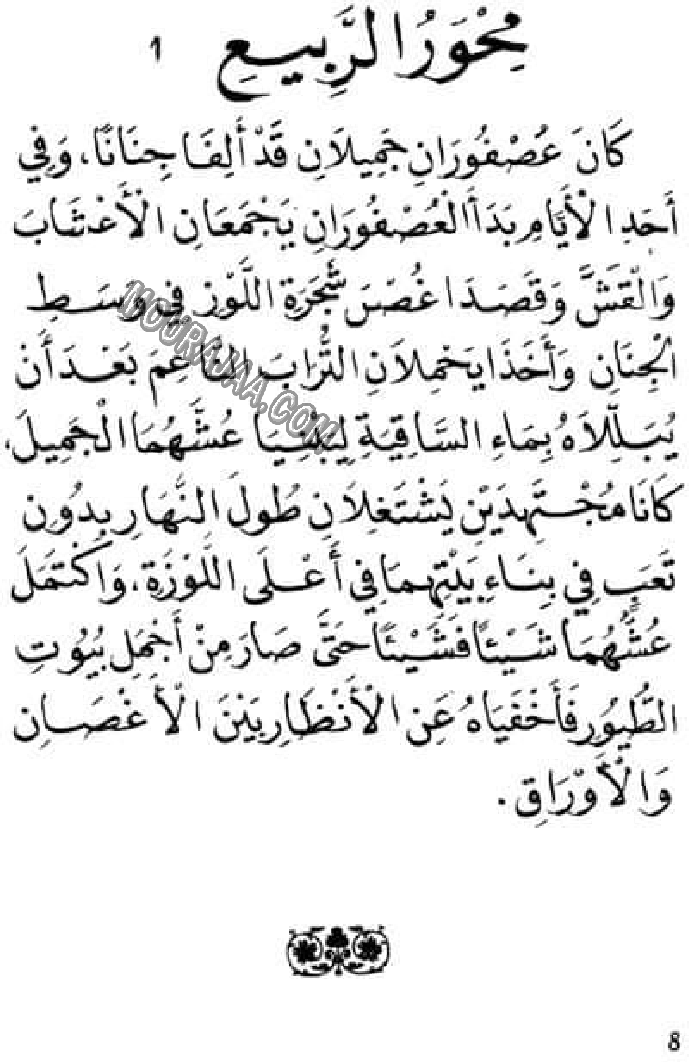 مِحْوَرُ الرَّبِيعِ 1
كَانَ عُصْفُورَانِ جَمِيلَانِ قَدْ أَلِفَا جِنَانًا، وَفِي
أَحَدِ الْأَيَّامِ بَدَأَ الْعُصْفُورَانِ يَجْمَعَانِ الْأَعْشَابَ
وَالْقَشَّ وَقَصَدَا غُصْنَ شَجَرَةِ اللَّوْزِ فِي وَسَطِ
الْجِنَانِ وَأَخَذَا يَحْمِلَانِ التُّرَابَ النَّاعِمَ بَعْدَ أَنْ
يُبَلِّلَاهُ بِمَاءِ السَّاقِيَةِ لِيَبْنِيَا عُشَّهُمَا الْجَمِيلَ،
كَانَا مُجْتَهِدَيْنِ يَشْتَغِلَانِ طُولَ النَّهَارِ بِدُونِ
تَعَبٍ فِي بِنَاءِ بَيْتِهِمَا فِي أَعْلَى اللَّوْزَةِ، وَاكْتَمَلَ
عُشُّهُمَا شَيْئًا فَشَيْئًا حَتَّى صَارَ مِنْ أَجْمَلِ بُيُوتِ
الطُّيُورِ فَأَخْفَيَاهُ عَنِ الْأَنْظَارِ بَيْنَ الْأَغْصَانِ
وَالْأَوْرَاقِ.
MOURAJAA.COM
8